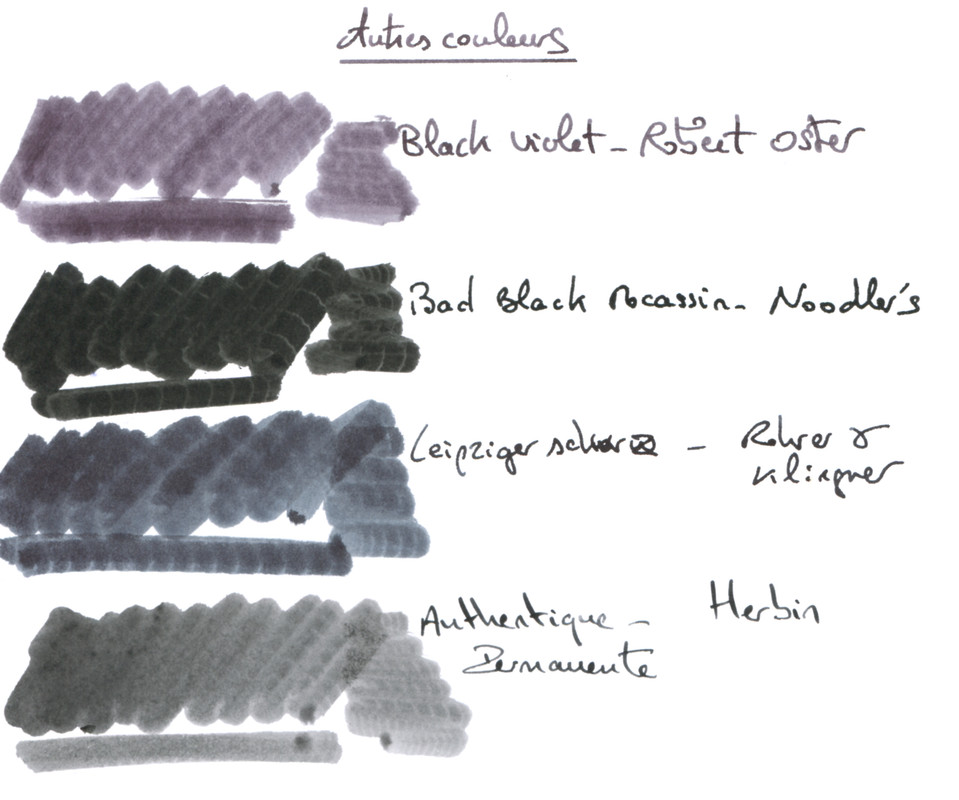 Autres couleurs
Black violet - Robert Oster
Bad Black Mocassin - Noodler's
Leipziger schwarz - Rohrer &
Klingner
Authentique - Herbin
Permanente